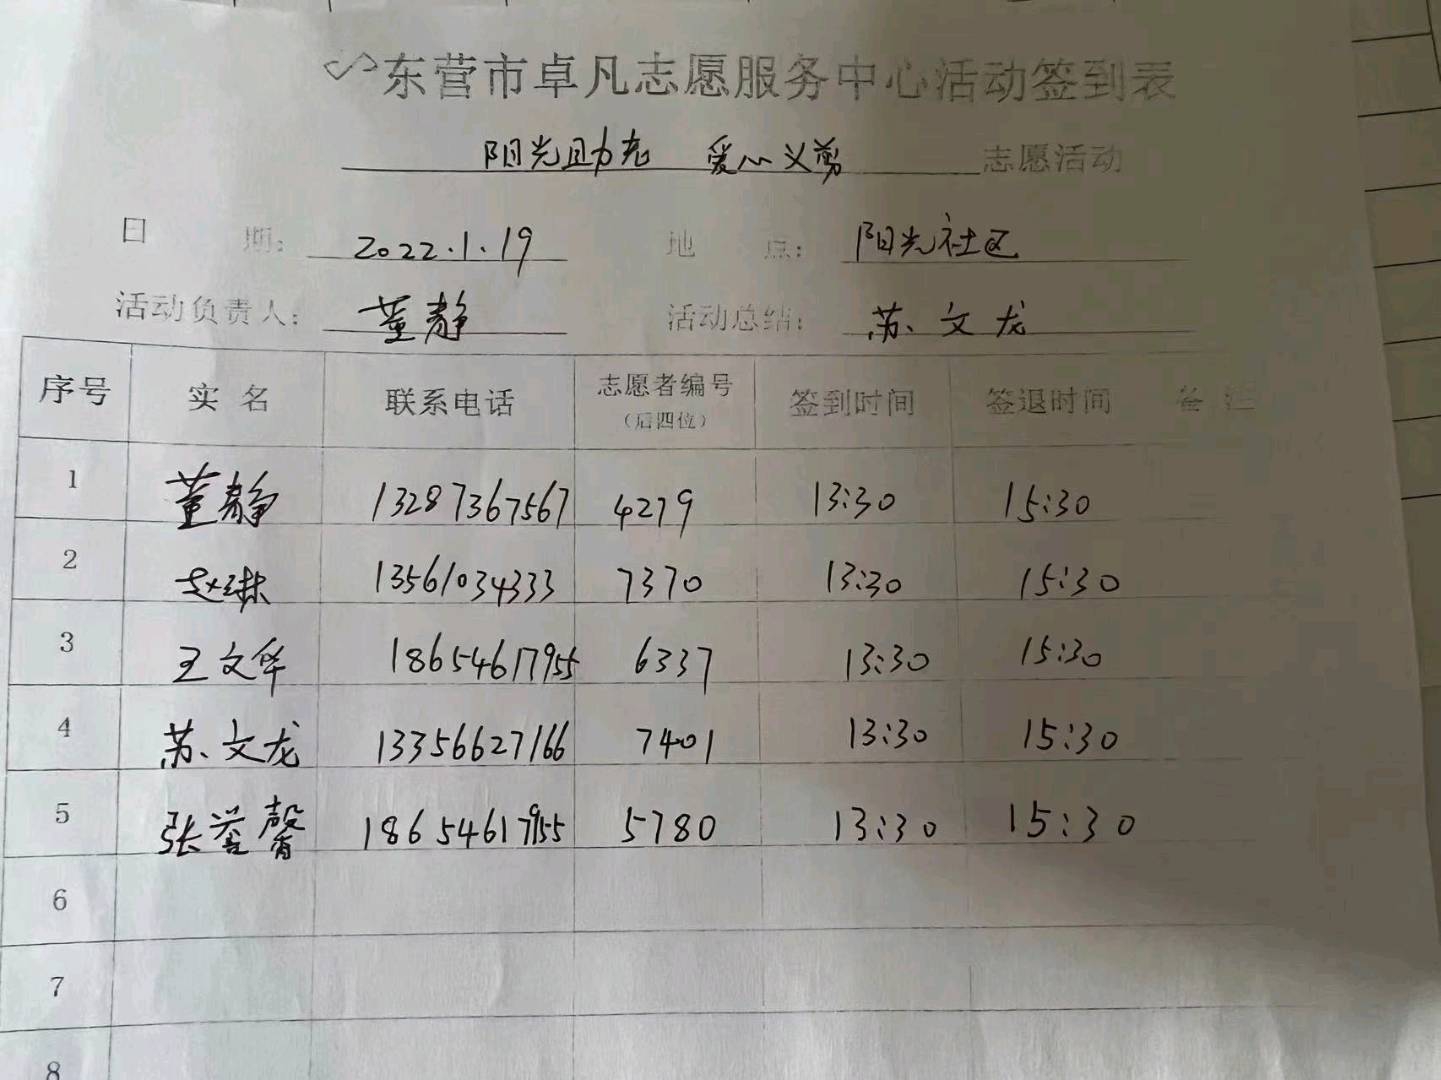 东营市卓凡志愿服务中心活动签到表
阳光助老 爱心义剪 志愿活动
日 期: 2022.1.19 地 点: 阳光社区
活动负责人: 董静 活动总结: 苏文龙
序号 实名 联系电话 志愿者编号 (后四位) 签到时间 签退时间 备注
1 董静 13287367567 4279 13:30 15:30
2 赵琳 13561034333 7370 13:30 15:30
3 王文华 18654617955 6337 13:30 15:30
4 苏文龙 13356627166 7401 13:30 15:30
5 张誉馨 18654617955 5780 13:30 15:30
6
7
8